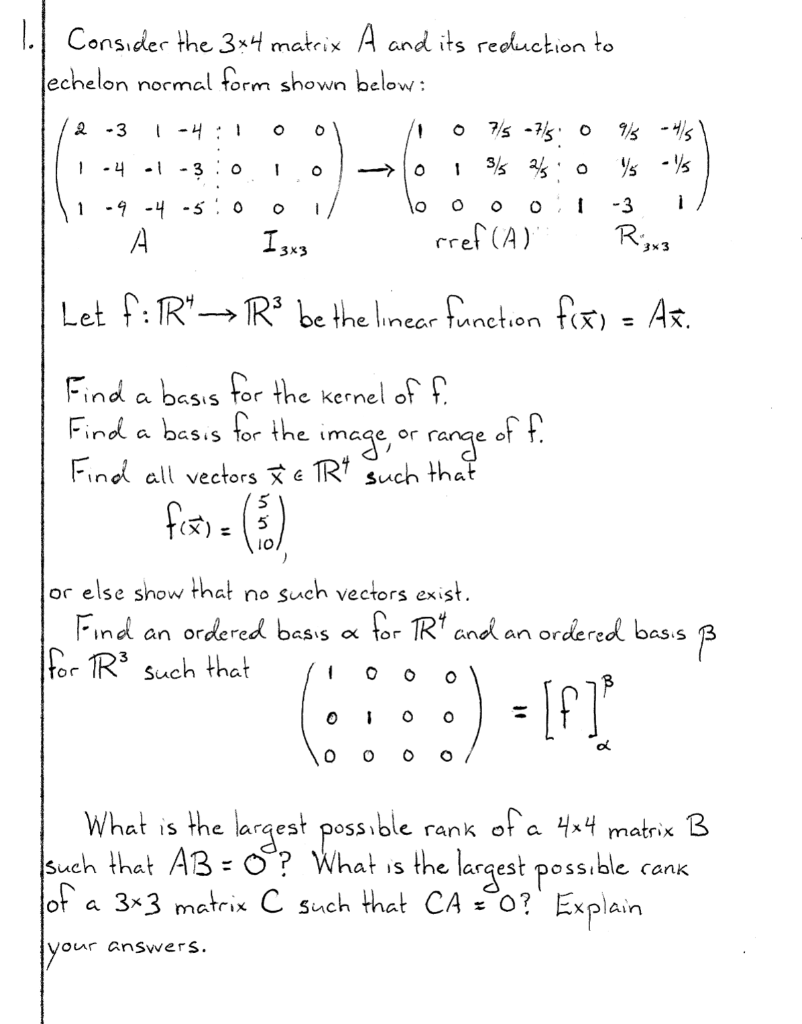 1. Consider the 3×4 matrix A and its reduction to
echelon normal form shown below:
( 2 -3 1 -4 : 1 0 0 ) → ( 1 0 7/5 -7/5 : 0 9/5 -4/5 )
( 1 -4 -1 -3 : 0 1 0 ) → ( 0 1 3/5 2/5 : 0 1/5 -1/5 )
( 1 -9 -4 -5 : 0 0 1 ) ( 0 0 0 0 : 1 -3 1 )
A I3×3 rref(A) R3×3
Let f: ℝ⁴ → ℝ³ be the linear function f(x⃗) = Ax⃗.
Find a basis for the kernel of f.
Find a basis for the image, or range of f.
Find all vectors x⃗ ∈ ℝ⁴ such that
f(x⃗) = ( 5 5 10 ),
or else show that no such vectors exist.
Find an ordered basis α for ℝ⁴ and an ordered basis β
for ℝ³ such that
( 1 0 0 0 )
( 0 1 0 0 ) = [f]βα
( 0 0 0 0 )
What is the largest possible rank of a 4×4 matrix B
such that AB = O? What is the largest possible rank
of a 3×3 matrix C such that CA = O? Explain
your answers.